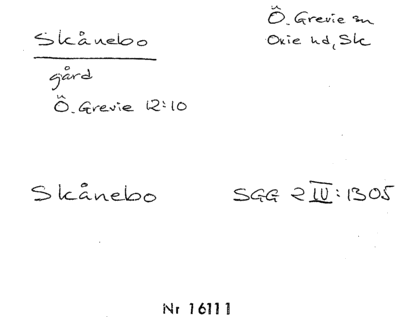 Skånebo
Ö. Grevie sn
Oxie hd, Sk
gård
Ö. Grevie 12:10
Skånebo
SGG 2 IV: 1305
Nr 16111